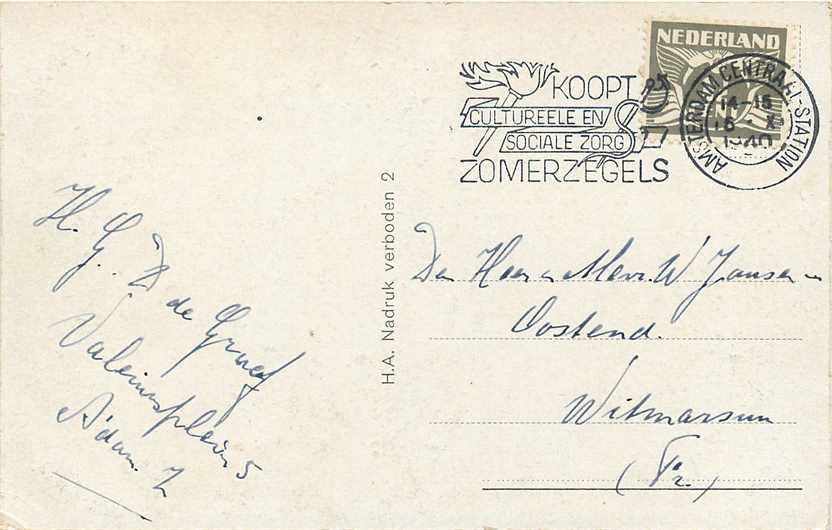 NEDERLAND
KOOPT
CULTUREELE EN
SOCIALE ZORG
ZOMERZEGELS
AMSTERDAM CENTRAAL-STATION
14-15
1940
H. G. D de Graaf
5
A'dam Z
H.A. Nadruk verboden 2
Den Heer en Mevr. W Jansen
Oostend.
Witmarsum
(Fr.)